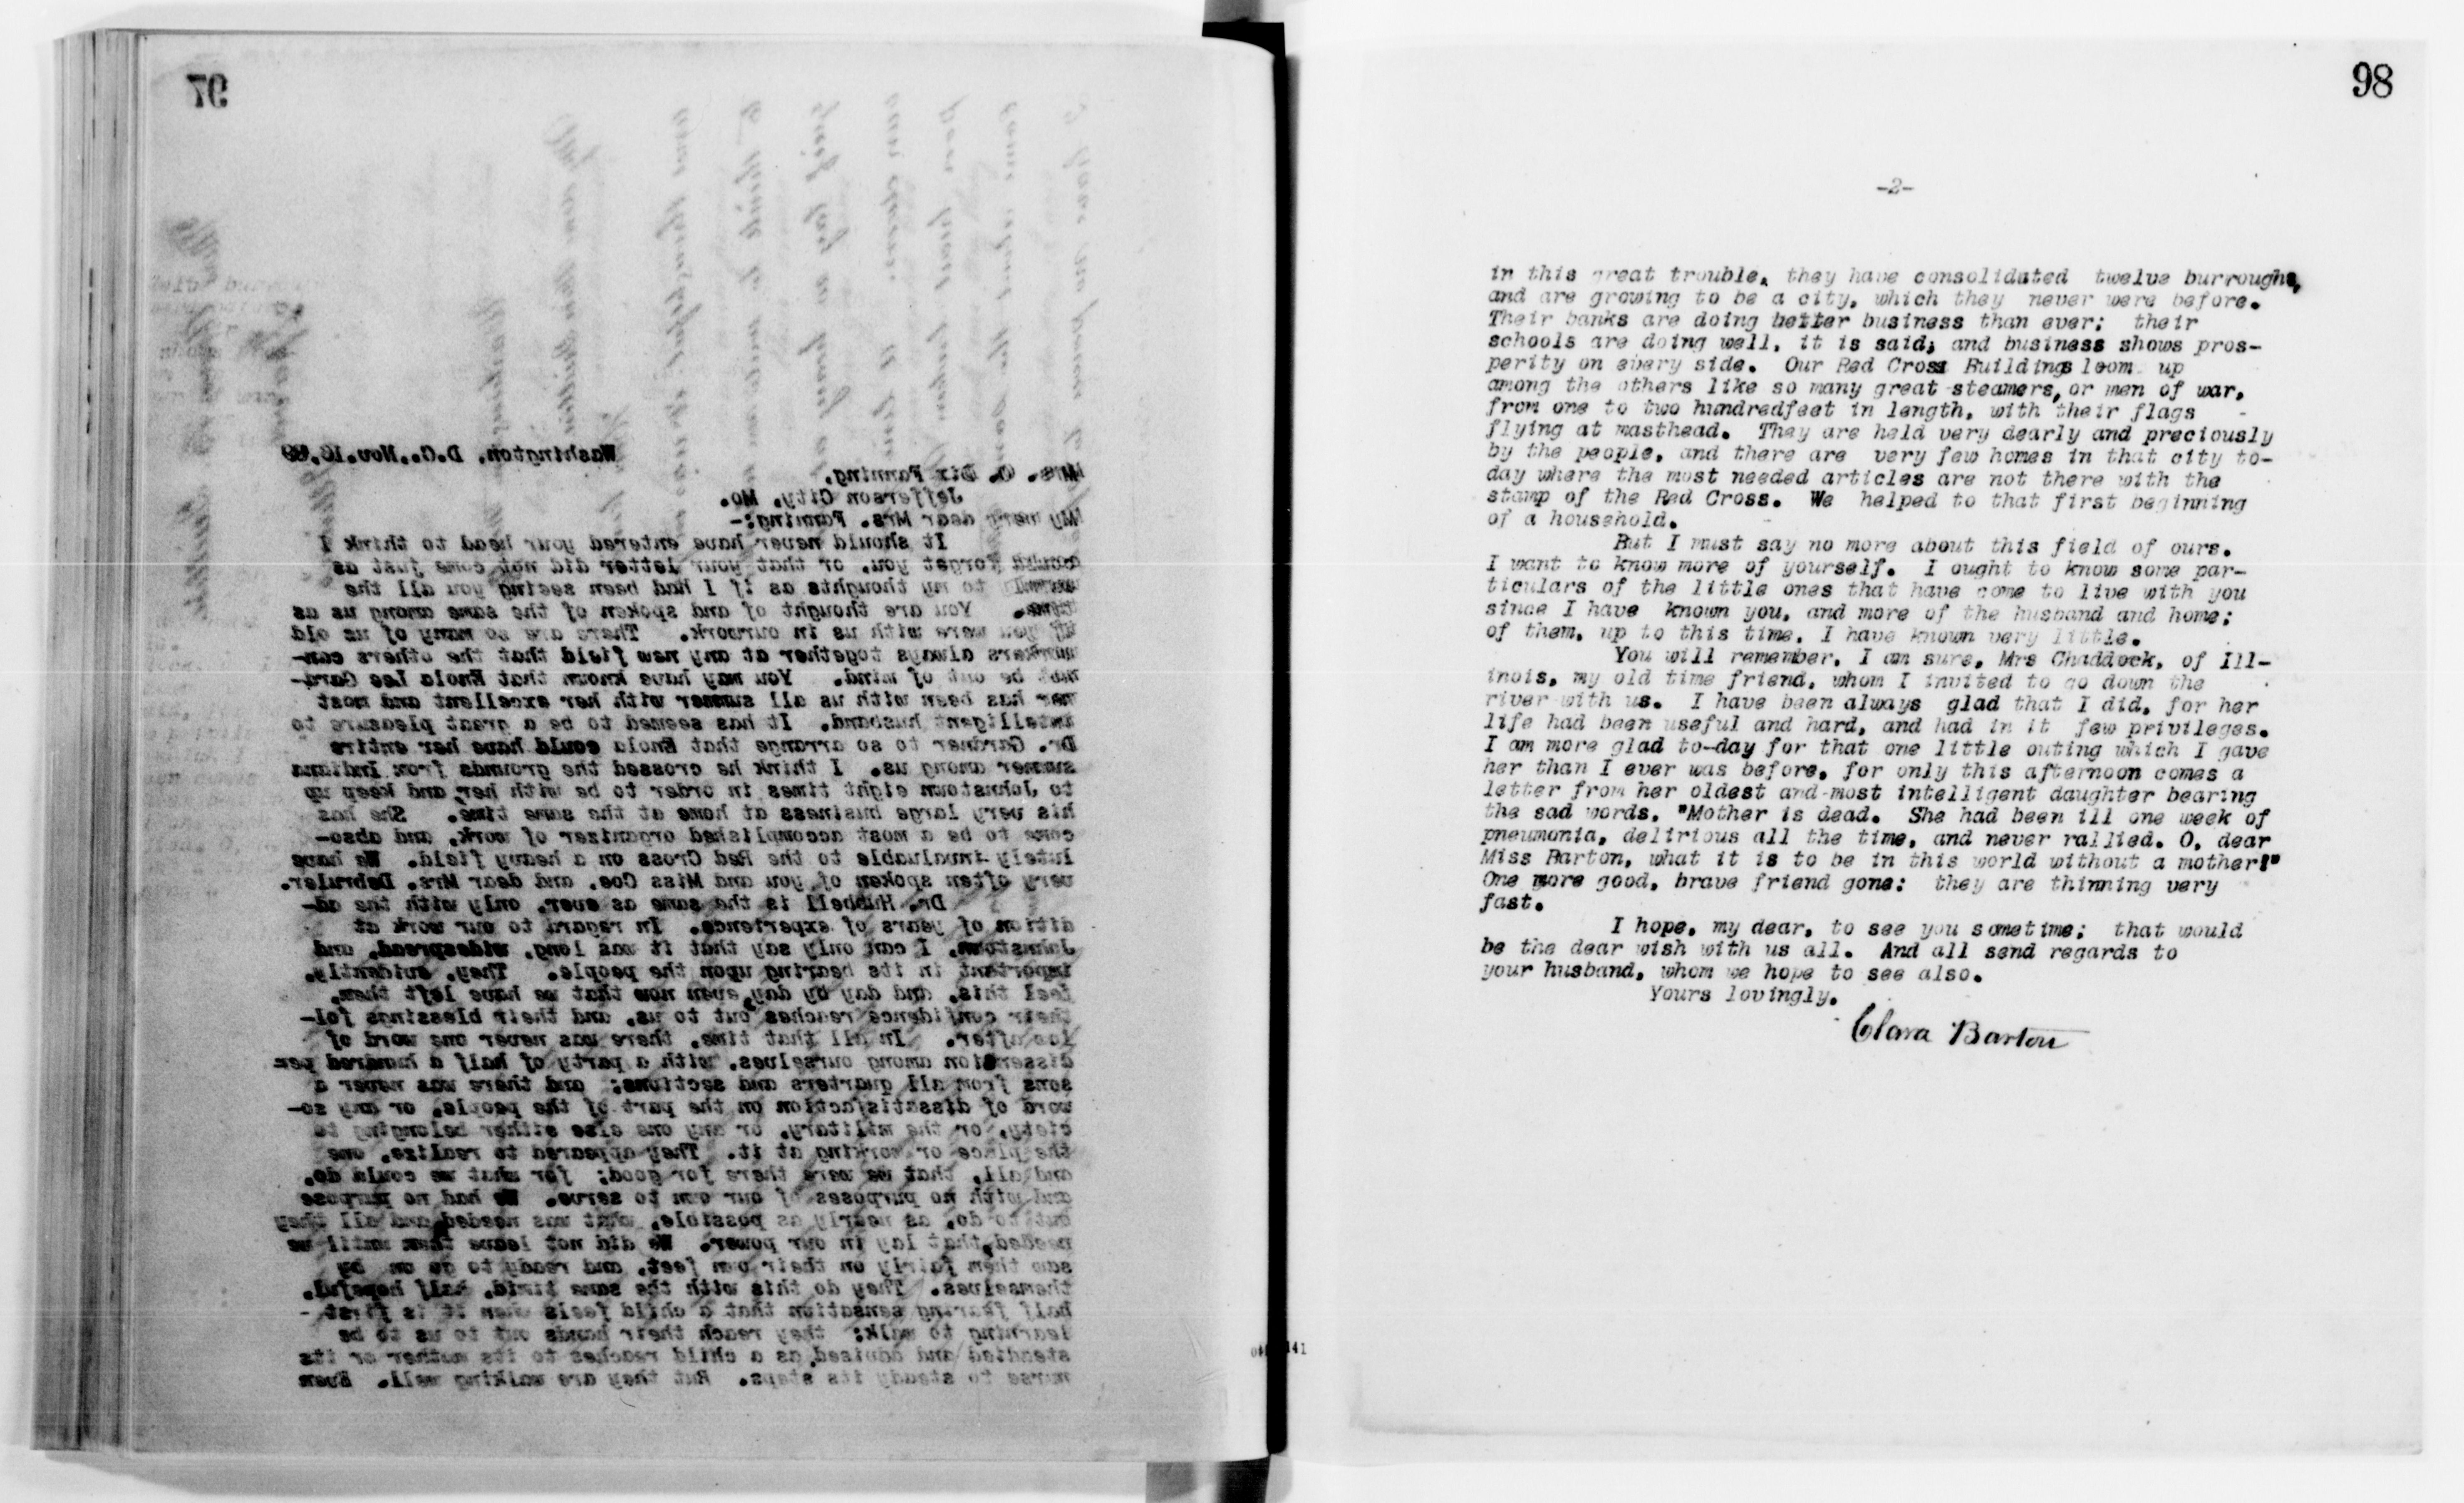 97
Washington, D.C., Nov. 16, 89
Mrs. O. Dix Fanning,
Jefferson City, Mo.
My very dear Mrs. Fanning:-
It should never have entered your head to think I
could forget you, or that your letter did not come just as
warmly to my thoughts as if I had been seeing you all the
time. You are thought of and spoken of the same among us as
if you were with us in ourwork. There are so many of us old
workers always together at any new field that the others can-
not be out of mind. You may have known that Enola Lee Gard-
ner has been with us all summer with her excellent and most
intelligent husband. It has seemed to be a great pleasure to
Dr. Gardner to so arrange that Enola could have her entire
summer among us. I think he crossed the grounds from Indiana
to Johnstown eight times in order to be with her, and keep up
his very large business at home at the same time. She has
come to be a most accomplished organizer of work, and abso-
lutely invaluable to the Red Cross on a heavy field. We have
very often spoken of you and Miss Coe, and dear Mrs. Debruler.
Dr. Hubbell is the same as ever, only with the ad-
dition of years of experience. In regard to our work at
Johnstown, I can only say that it was long, widespread, and
important in its bearing upon the people. They, evidently,
feel this, and day by day, even now that we have left them,
their confidence reaches out to us, and their blessings fol-
low after. In all that time, there was never one word of
dissension among ourselves, with a party of half a hundred per-
sons from all quarters and sections; and there was never a
word of dissatisfaction on the part of the people, or any so-
ciety, or the military, or any one else either belonging to
the place or working at it. They appeared to realize, one
and all, that we were there for good; for what we could do,
and with no purposes of our own to serve. We had no purpose
but to do, as nearly as possible, what was needed, and all they
needed, that lay in our power. We did not leave them until we
saw them fairly on their own feet, and ready to go on by
themselves. They do this with the same timid, half hopeful,
half fearing sensation that a child feels when it is first
learning to walk; they reach their hands out to us to be
steadied and advised, as a child reaches to its mother or its
nurse to steady its steps. But they are walking well. Even
98
-2-
in this great trouble, they have consolidated twelve burroughs,
and are growing to be a city, which they never were before.
Their banks are doing better business than ever; their
schools are doing well, it is said; and business shows pros-
perity on every side. Our Red Cross Buildings loom up
among the others like so many great steamers, or men of war,
from one to two hundredfeet in length, with their flags
flying at masthead. They are held very dearly and preciously
by the people, and there are very few homes in that city to-
day where the most needed articles are not there with the
stamp of the Red Cross. We helped to that first beginning
of a household.
But I must say no more about this field of ours.
I want to know more of yourself. I ought to know some par-
ticulars of the little ones that have come to live with you
since I have known you, and more of the husband and home;
of them, up to this time, I have known very little.
You will remember, I am sure, Mrs Chaddock, of Ill-
inois, my old time friend, whom I invited to go down the
river with us. I have been always glad that I did, for her
life had been useful and hard, and had in it few privileges.
I am more glad to-day for that one little outing which I gave
her than I ever was before, for only this afternoon comes a
letter from her oldest and most intelligent daughter bearing
the sad words, "Mother is dead. She had been ill one week of
pneumonia, delirious all the time, and never rallied. O, dear
Miss Barton, what it is to be in this world without a mother!"
One more good, brave friend gone; they are thinning very
fast.
I hope, my dear, to see you sometime; that would
be the dear wish with us all. And all send regards to
your husband, whom we hope to see also.
Yours lovingly,
Clara Barton